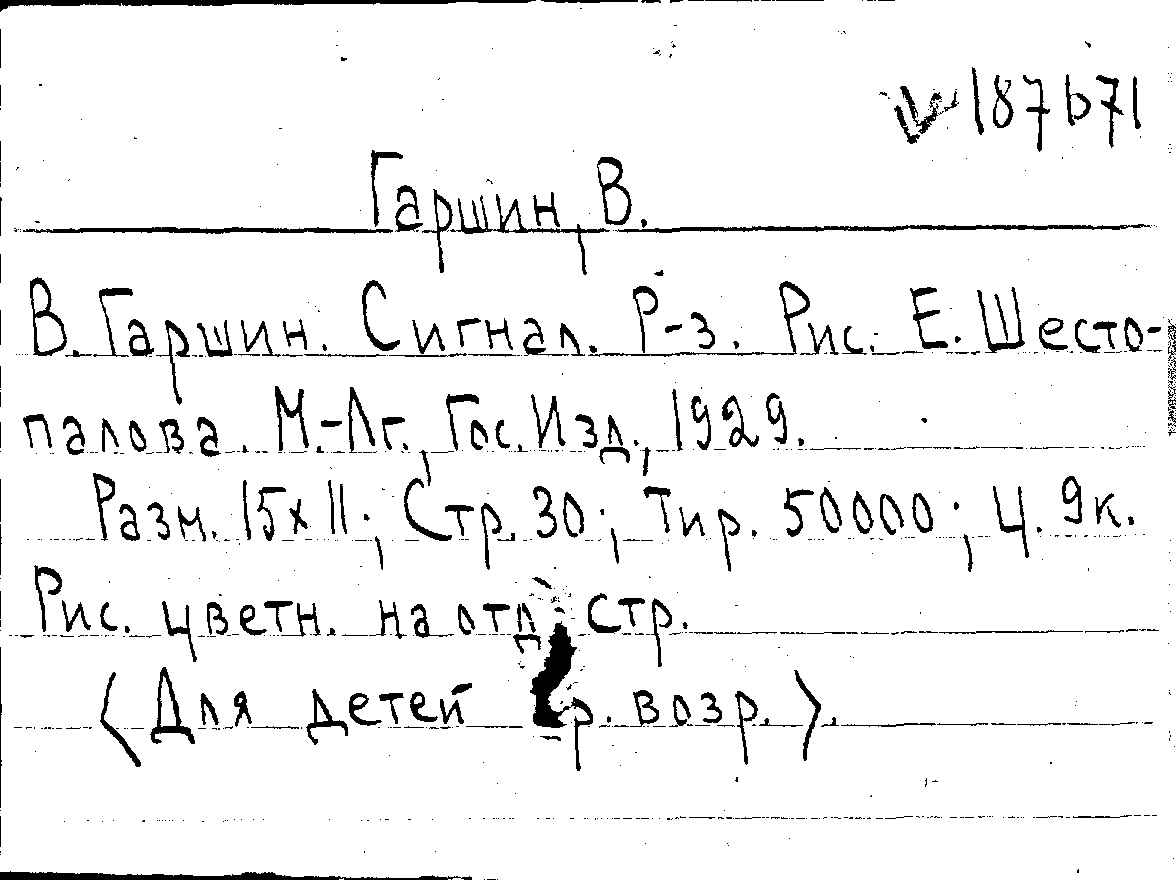 187b71
Гаршин, В.
В. Гаршин. Сигнал. Р-з. Рис. Е. Шесто-
палова. М.-Лг., Гос. Изд., 1929.
Разм. 15х11; Стр. 30; Тир. 50000; Ц. 9к.
Рис. цветн. на отд. стр.
〈Для детей ср. возр.〉.